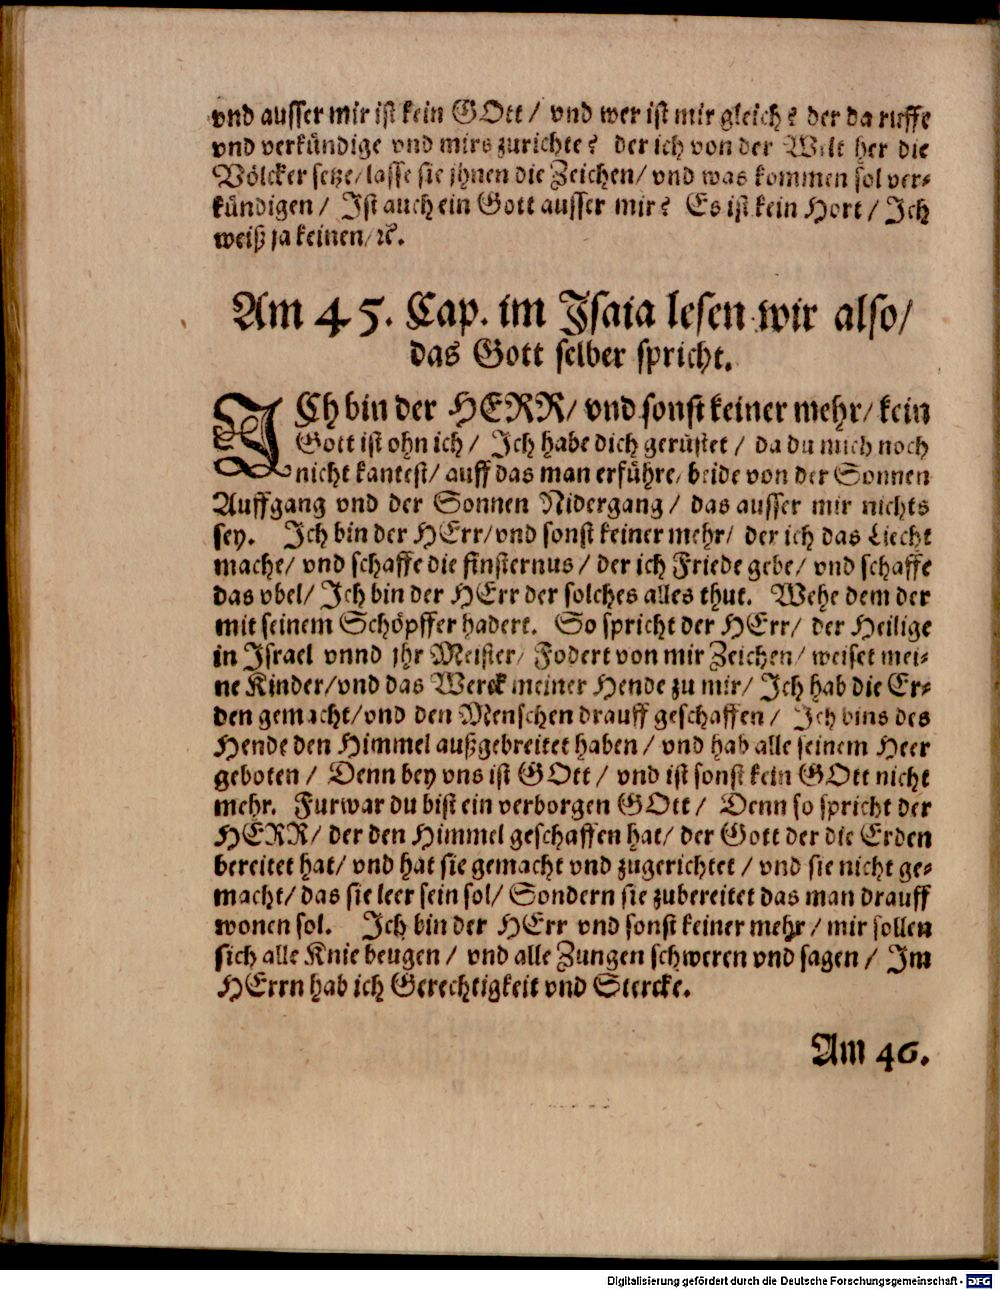 vnd ausser mir ist kein GOtt / vnd wer ist mir gleich? der da ruffe
vnd verkündige vnd mirs zurichte? der ich von der Welt her die
Völcker setze/ lasse sie jhnen die Zeichen/ vnd was kommen sol ver-
kündigen / Ist auch ein Gott ausser mir? Es ist kein Hort / Ich
weiß ja keinen/ ꝛc.
Am 45. Cap. im Isaia lesen wir also/
das Gott selber spricht.
ICh bin der HERR/ vnd sonst keiner mehr/ kein
Gott ist ohn ich / Ich habe dich gerüstet / da du mich noch
nicht kantest/ auff das man erführe/ beide von der Sonnen
Auffgang vnd der Sonnen Nidergang / das ausser mir nichts
sey. Ich bin der HErr/vnd sonst keiner mehr/ der ich das Liecht
mache/ vnd schaffe die finsternus / der ich Friede gebe/ vnd schaffe
das vbel/ Ich bin der HErr der solches alles thut. Wehe dem der
mit seinem Schöpffer hadert. So spricht der HErr/ der Heilige
in Israel vnnd jhr Meister/ Fodert von mir Zeichen/ weiset mei-
ne Kinder/vnd das Werck meiner Hende zu mir/ Ich hab die Er-
den gemacht/vnd den Menschen drauff geschaffen / Ich bins des
Hende den Himmel außgebreitet haben / vnd hab alle seinem Heer
geboten / Denn bey vns ist GOtt / vnd ist sonst kein GOtt nicht
mehr. Furwar du bist ein verborgen GOtt / Denn so spricht der
HERR/ der den Himmel geschaffen hat/ der Gott der die Erden
bereitet hat/ vnd hat sie gemacht vnd zugerichtet / vnd sie nicht ge-
macht/ das sie leer sein sol/ Sondern sie zubereitet das man drauff
wonen sol. Ich bin der HErr vnd sonst keiner mehr / mir sollen
sich alle Knie beugen / vnd alle Zungen schweren vnd sagen / Im
HErrn hab ich Gerechtigkeit vnd Stercke.
Am 46.
Digitalisierung gefördert durch die Deutsche Forschungsgemeinschaft - DFG